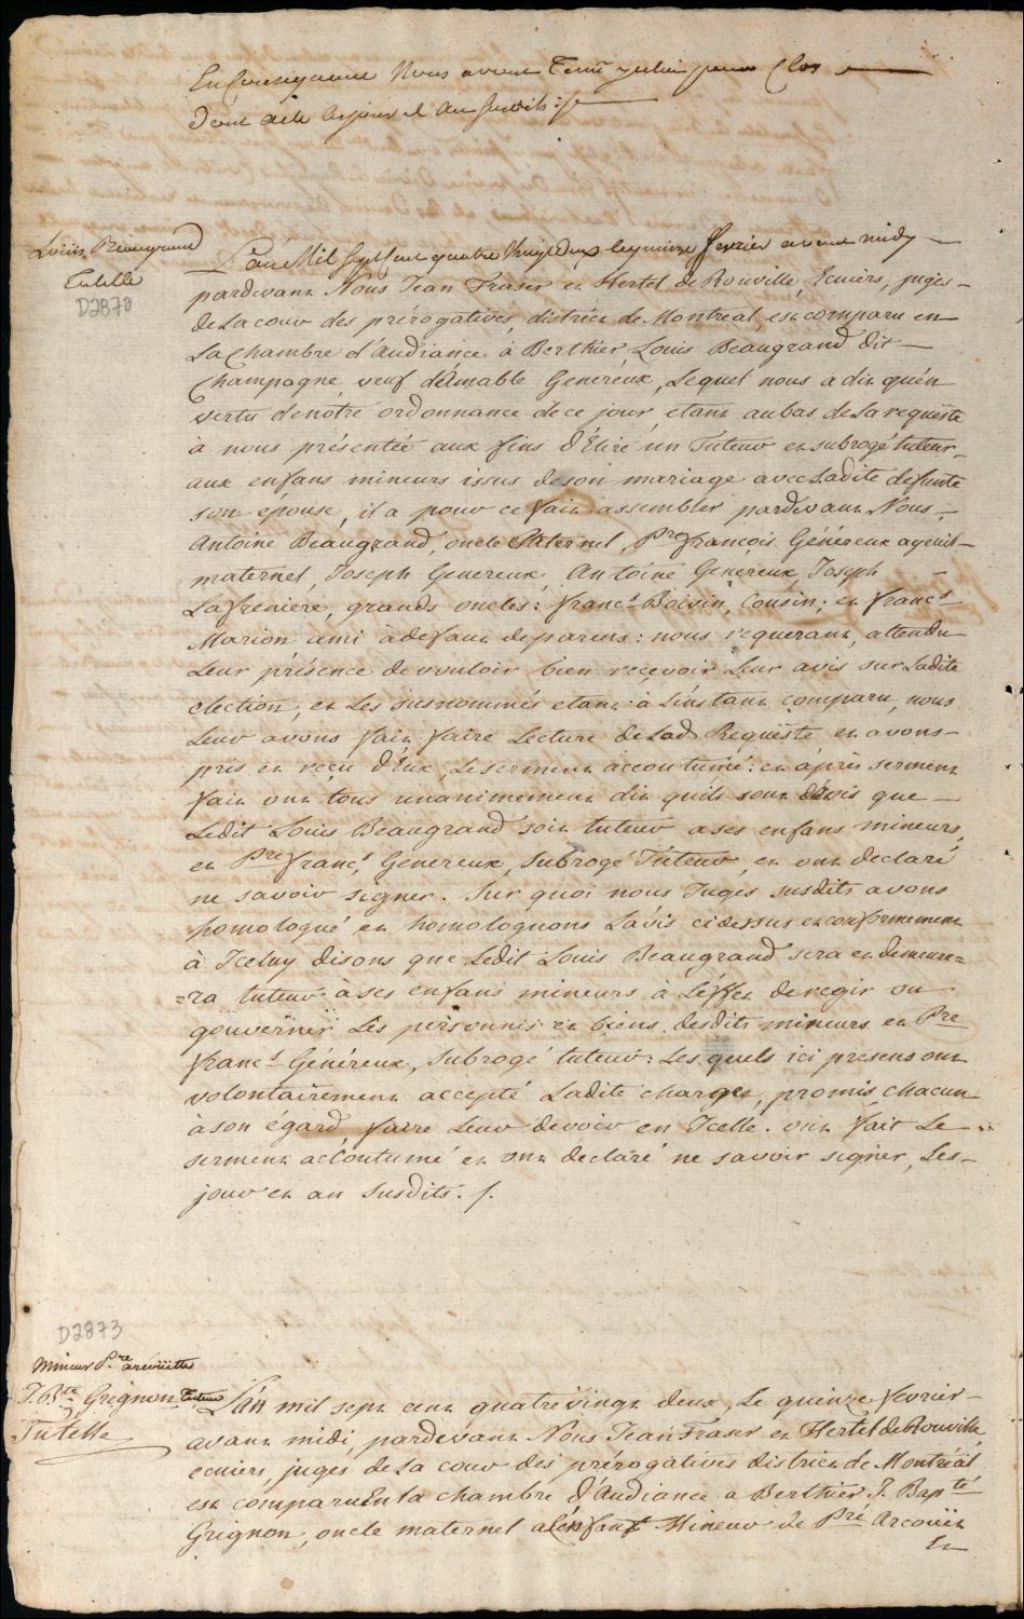 En Consequence Nous avons clos
dont acte les jour et an susdits ./.
Louis Beaugrand
Tutelle
D2870
L'an Mil Sept Cent quatre Vingt deux le quinze fevrier avant midy
pardevant Nous Jean Fraser et Hertel de Rouville, Ecuiers, juges
de La cour des prérogatives, district de Montreal, est comparu en
La Chambre d'audiance à Berthier, Louis Beaugrand dit
Champagne, veuf d'Amable Genereux, Lequel nous à dit qu'en
vertu de notre ordonnance de ce jour étant au bas de La requeste
à nous présentée aux fins d'Elire un Tuteur et subrogé tuteur
aux enfans mineurs issus de son mariage avec Ladite defunte
son épouse, il a pour ce fait assembler pardevant Nous
Antoine Beaugrand, oncle Paternel, Pre françois Généreux ayeul
maternel, Joseph Genereux, Antoine Genereux, Joseph
Lafreniere, grands oncles: francs Boisin, Cousin; et francs
Marion ami à defaut de parens: nous requerant, attendu
Leur présence de vouloir bien recevoir Leur avis sur Ladite
election, et Les susnommés etant à L'instant comparu, nous
Leur avons fait faire Lecture de Lad. Requeste et avons
pris et reçu d'Eux, Le serment accoutumé: et après serment
fait ont tous unanimement dit quils sont d'avis que
Ledit Louis Beaugrand soit tuteur a ses enfans mineurs,
et Pre francs Genereux, Subrogé Tuteur, et ont declaré
ne savoir signer. Sur quoi nous Juges susdits avons
homologué et homologuons L'avis ci dessus et conformement
à Iceluy disons que Ledit Louis Beaugrand sera et demeure=
=ra tuteur à ses enfans mineurs à L'effet de regir ou
gouverner Les personnes et biens desdits mineurs et Pre
francs Généreux, Subrogé tuteur: Les quels ici presens ont
volontairement accepté Ladite charge, promis chacun
à son égard, faire Leur devoir en Icelle. ont fait Le
serment accoutumé et ont declaré ne savoir signer, Les
jour et an Susdits. /.
D2873
Mineur Pre arcouette
J. Bte Grignon Tuteur
Tutelle
L'an mil sept cent quatre vingt deux, Le quinze fevrier
avant midi, pardevant Nous Jean Fraser et Hertel de Rouville
ecuiers, juges de La cour des prérogatives district de Montréal
est comparu En la chambre d'Audiance a Berthier J. Bapte
Grignon, oncle maternel a L'enfant Mineur de Pre Arcouët
Et